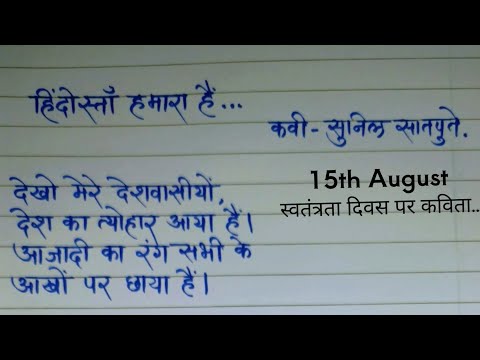 हिंदोस्ताँ हमारा हैं...
कवी - सुनिल सातपुते.
15th August
स्वतंत्रता दिवस पर कविता..
देखो मेरे देशवासीयों,
देश का त्योहार आया हैं।
आजादी का रंग सभी के
आखों पर छाया हैं।